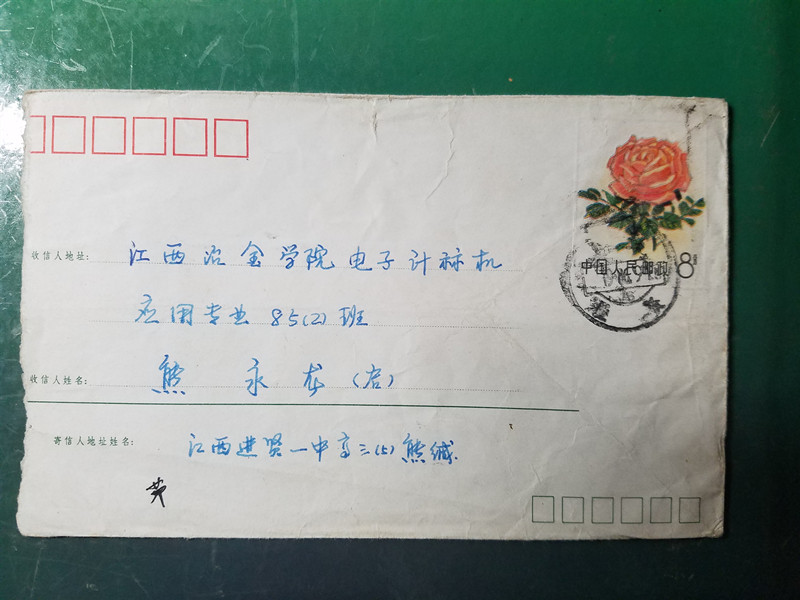 收信人地址: 江西冶金学院电子计祘机
应用专业85(2)班
收信人姓名: 熊永龙(启)
寄信人地址姓名: 江西进贤一中高三(5)熊缄
中国人民邮政 8分